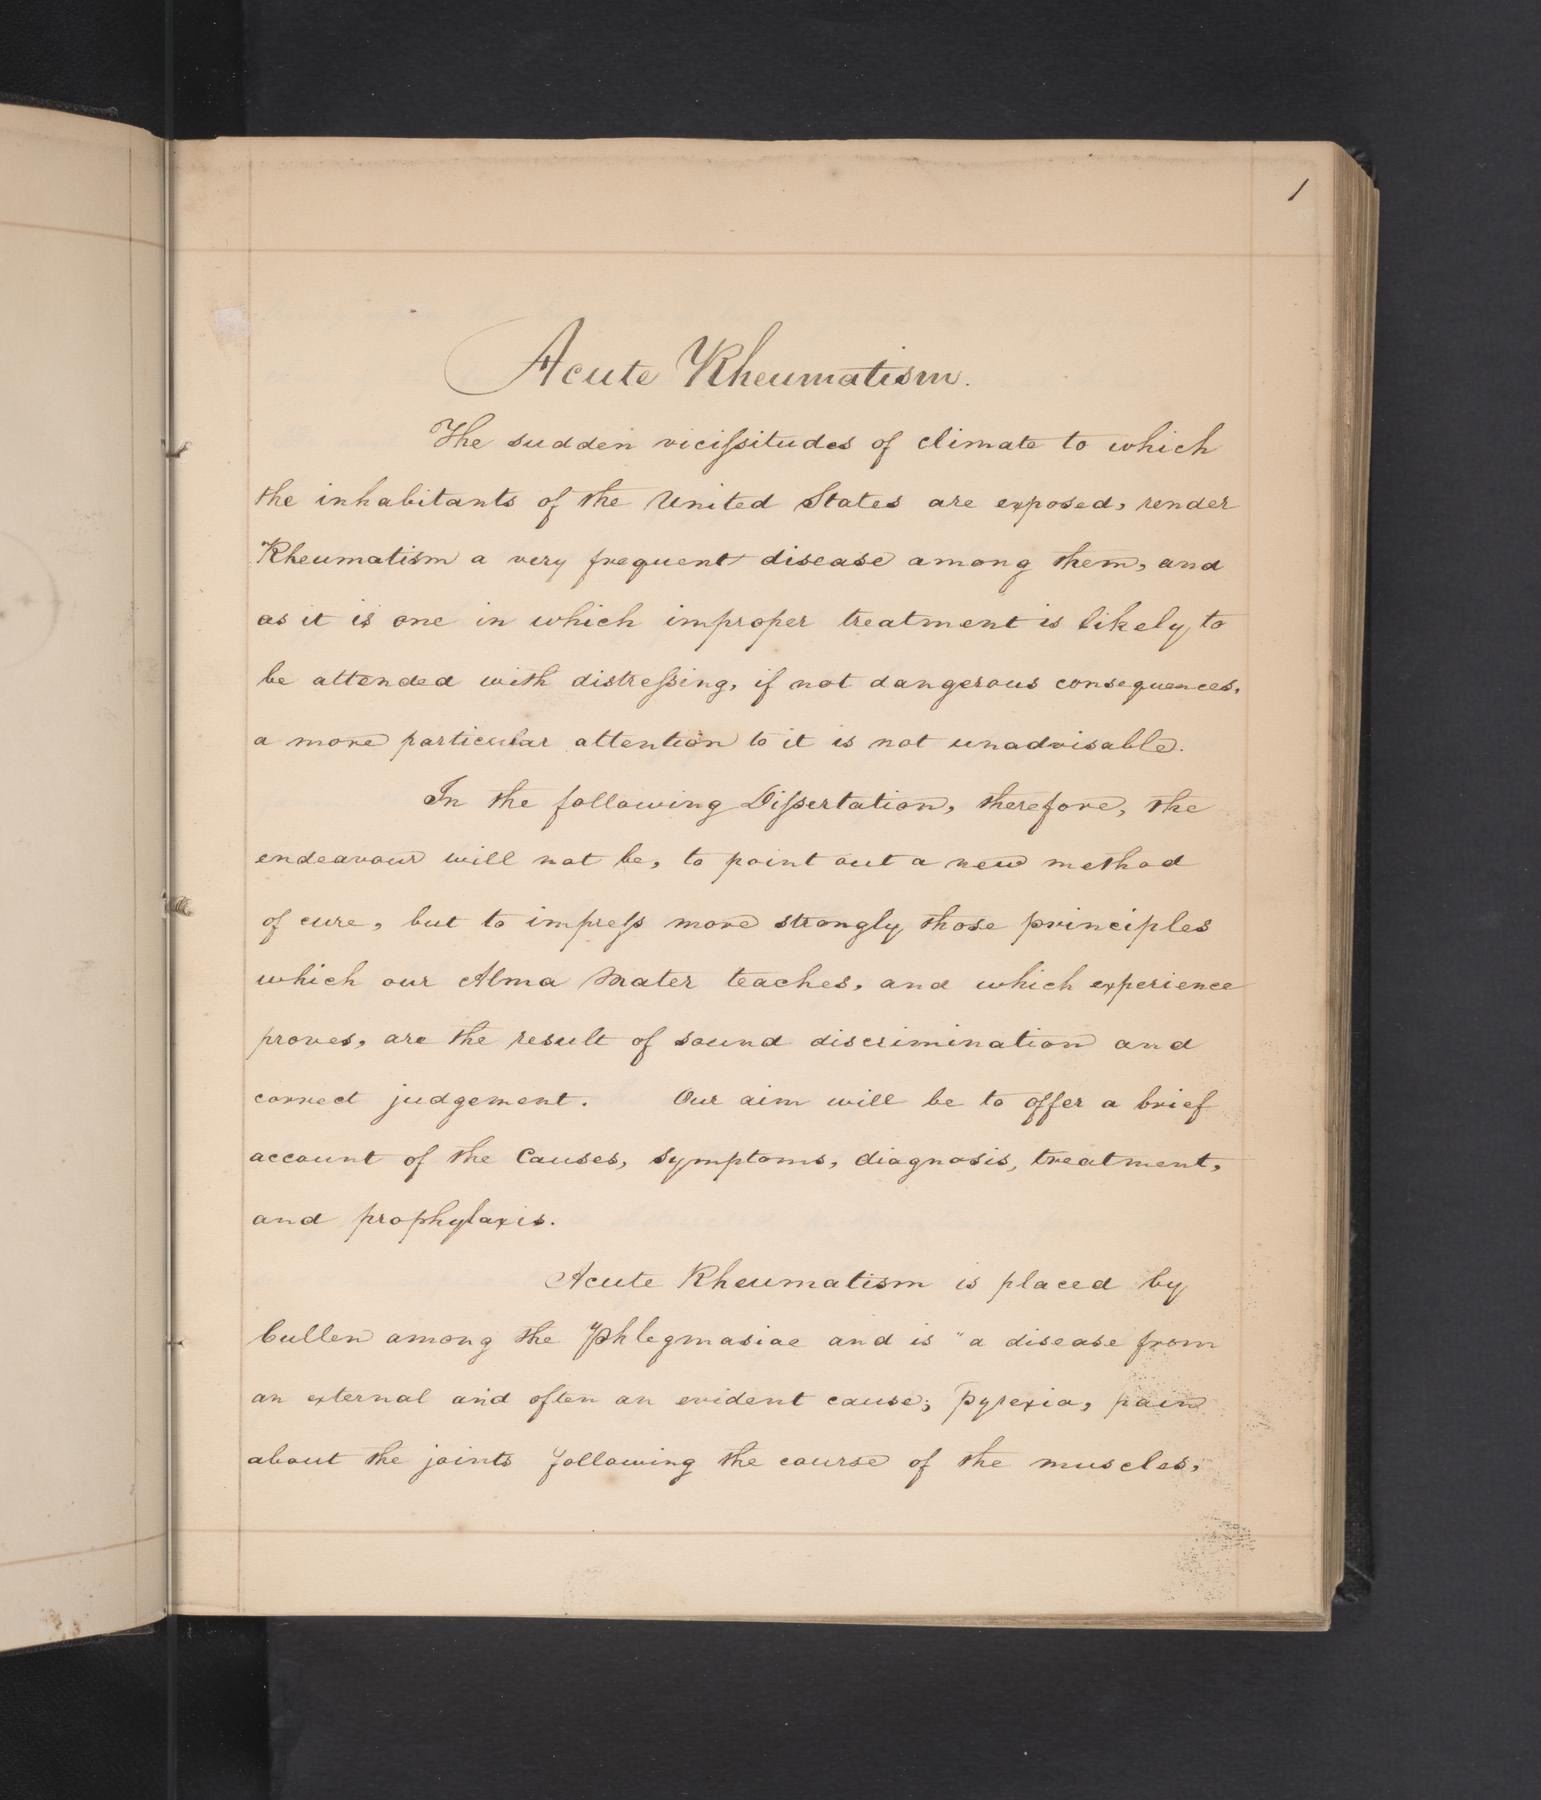 1
Acute Rheumatism.
The sudden viciſsitudes of climate to which
the inhabitants of the United States are exposed, render
Rheumatism a very frequent disease among them, and
as it is one in which improper treatment is likely to
be attended with distreſsing, if not dangerous consequences,
a more particular attention to it is not unadvisable.
In the following Diſsertation, therefore, the
endeavour will not be, to point out a new method
of cure, but to impreſs more strongly those principles
which our Alma Mater teaches, and which experience
proves, are the result of sound discrimination and
correct judgement. Our aim will be to offer a brief
account of the Causes, symptoms, diagnosis, treatment,
and prophylaxis.
Acute Rheumatism is placed by
Cullen among the Phlegmasiae and is "a disease from
an external and often an evident cause; pyrexia, pain
about the joints following the course of the muscles,